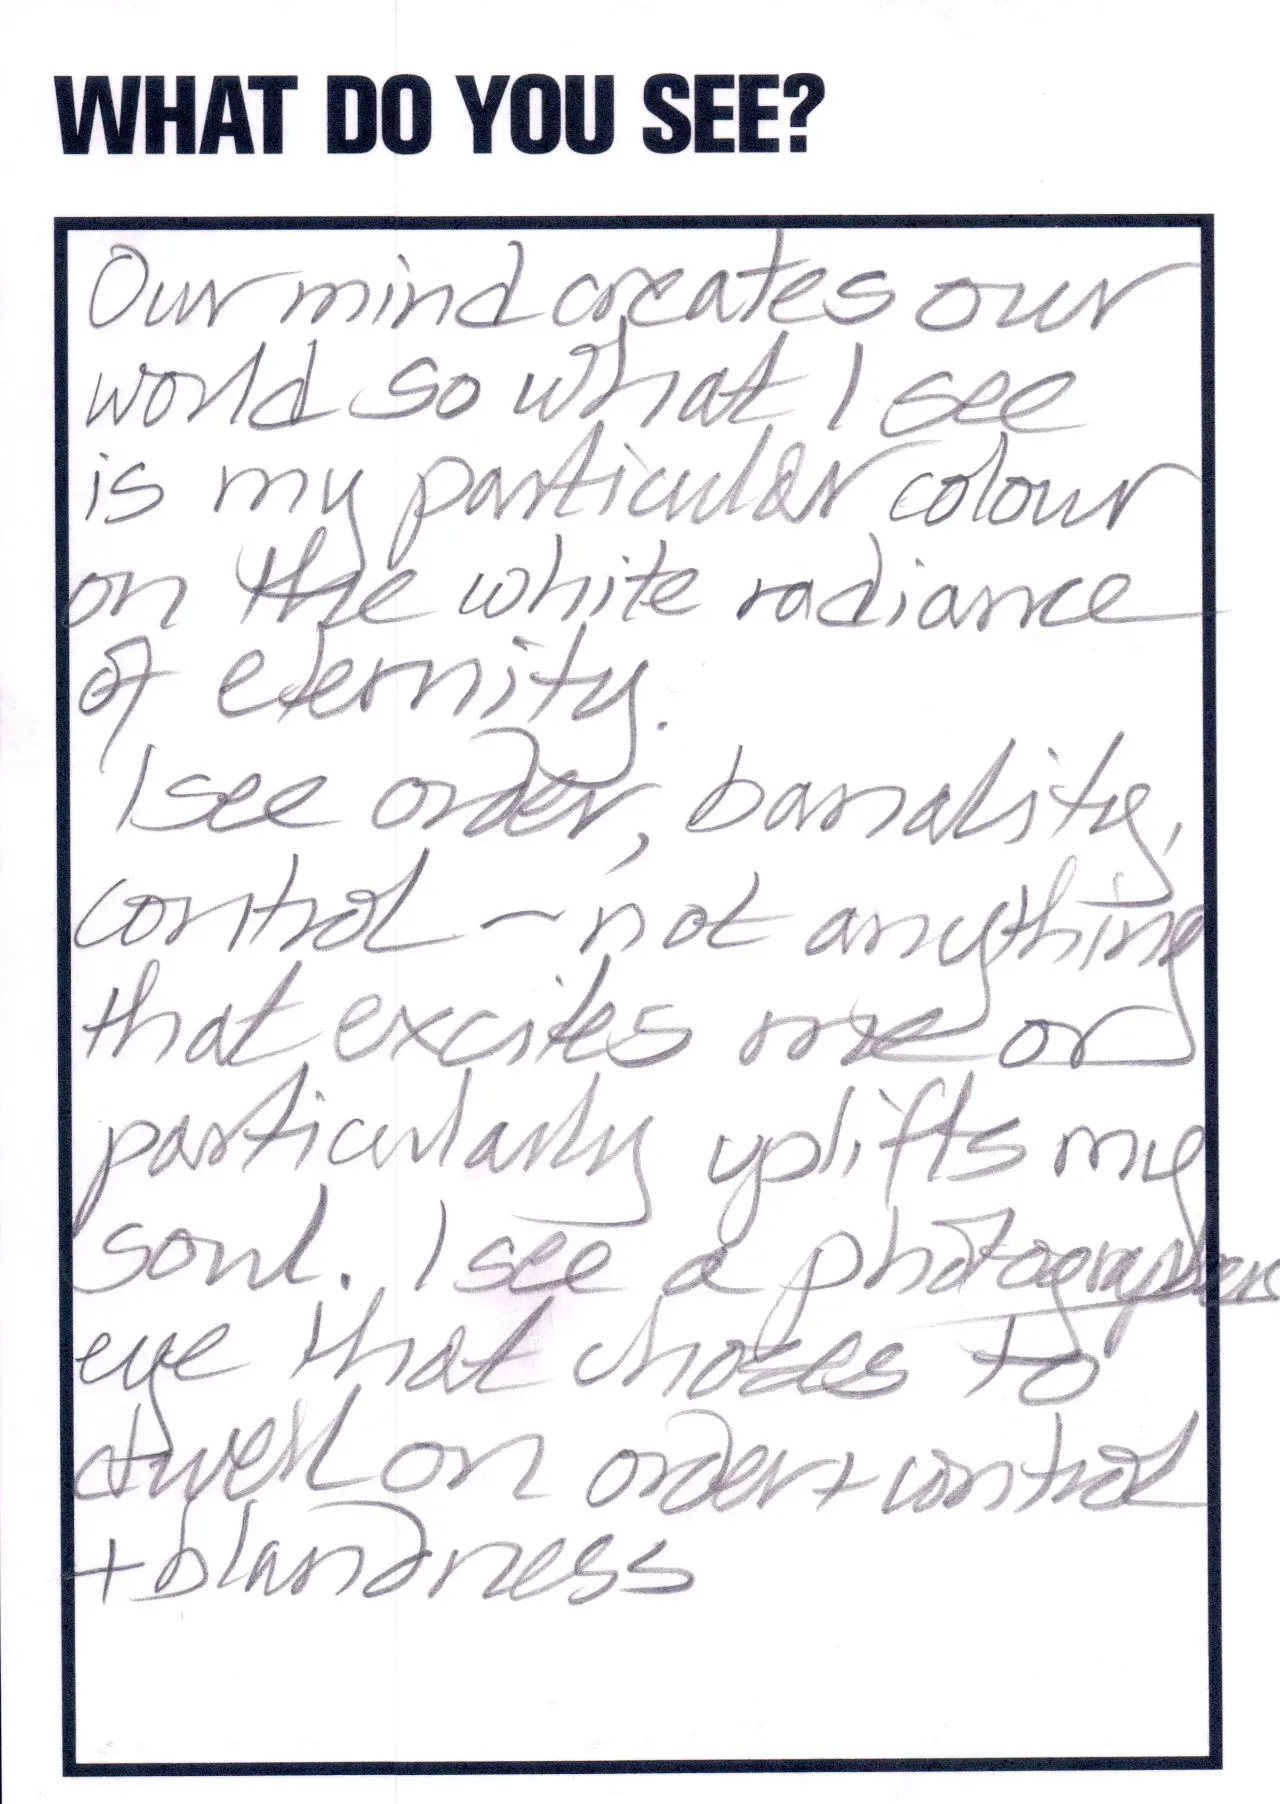 WHAT DO YOU SEE?
Our mind creates our
world so what I see
is my particular colour
on the white radiance
of eternity.
I see order, banality,
control - not anything
that excites me or
particularly uplifts my
soul. I see a photographers
eye that choses to
dwell on order + control
+ blandness